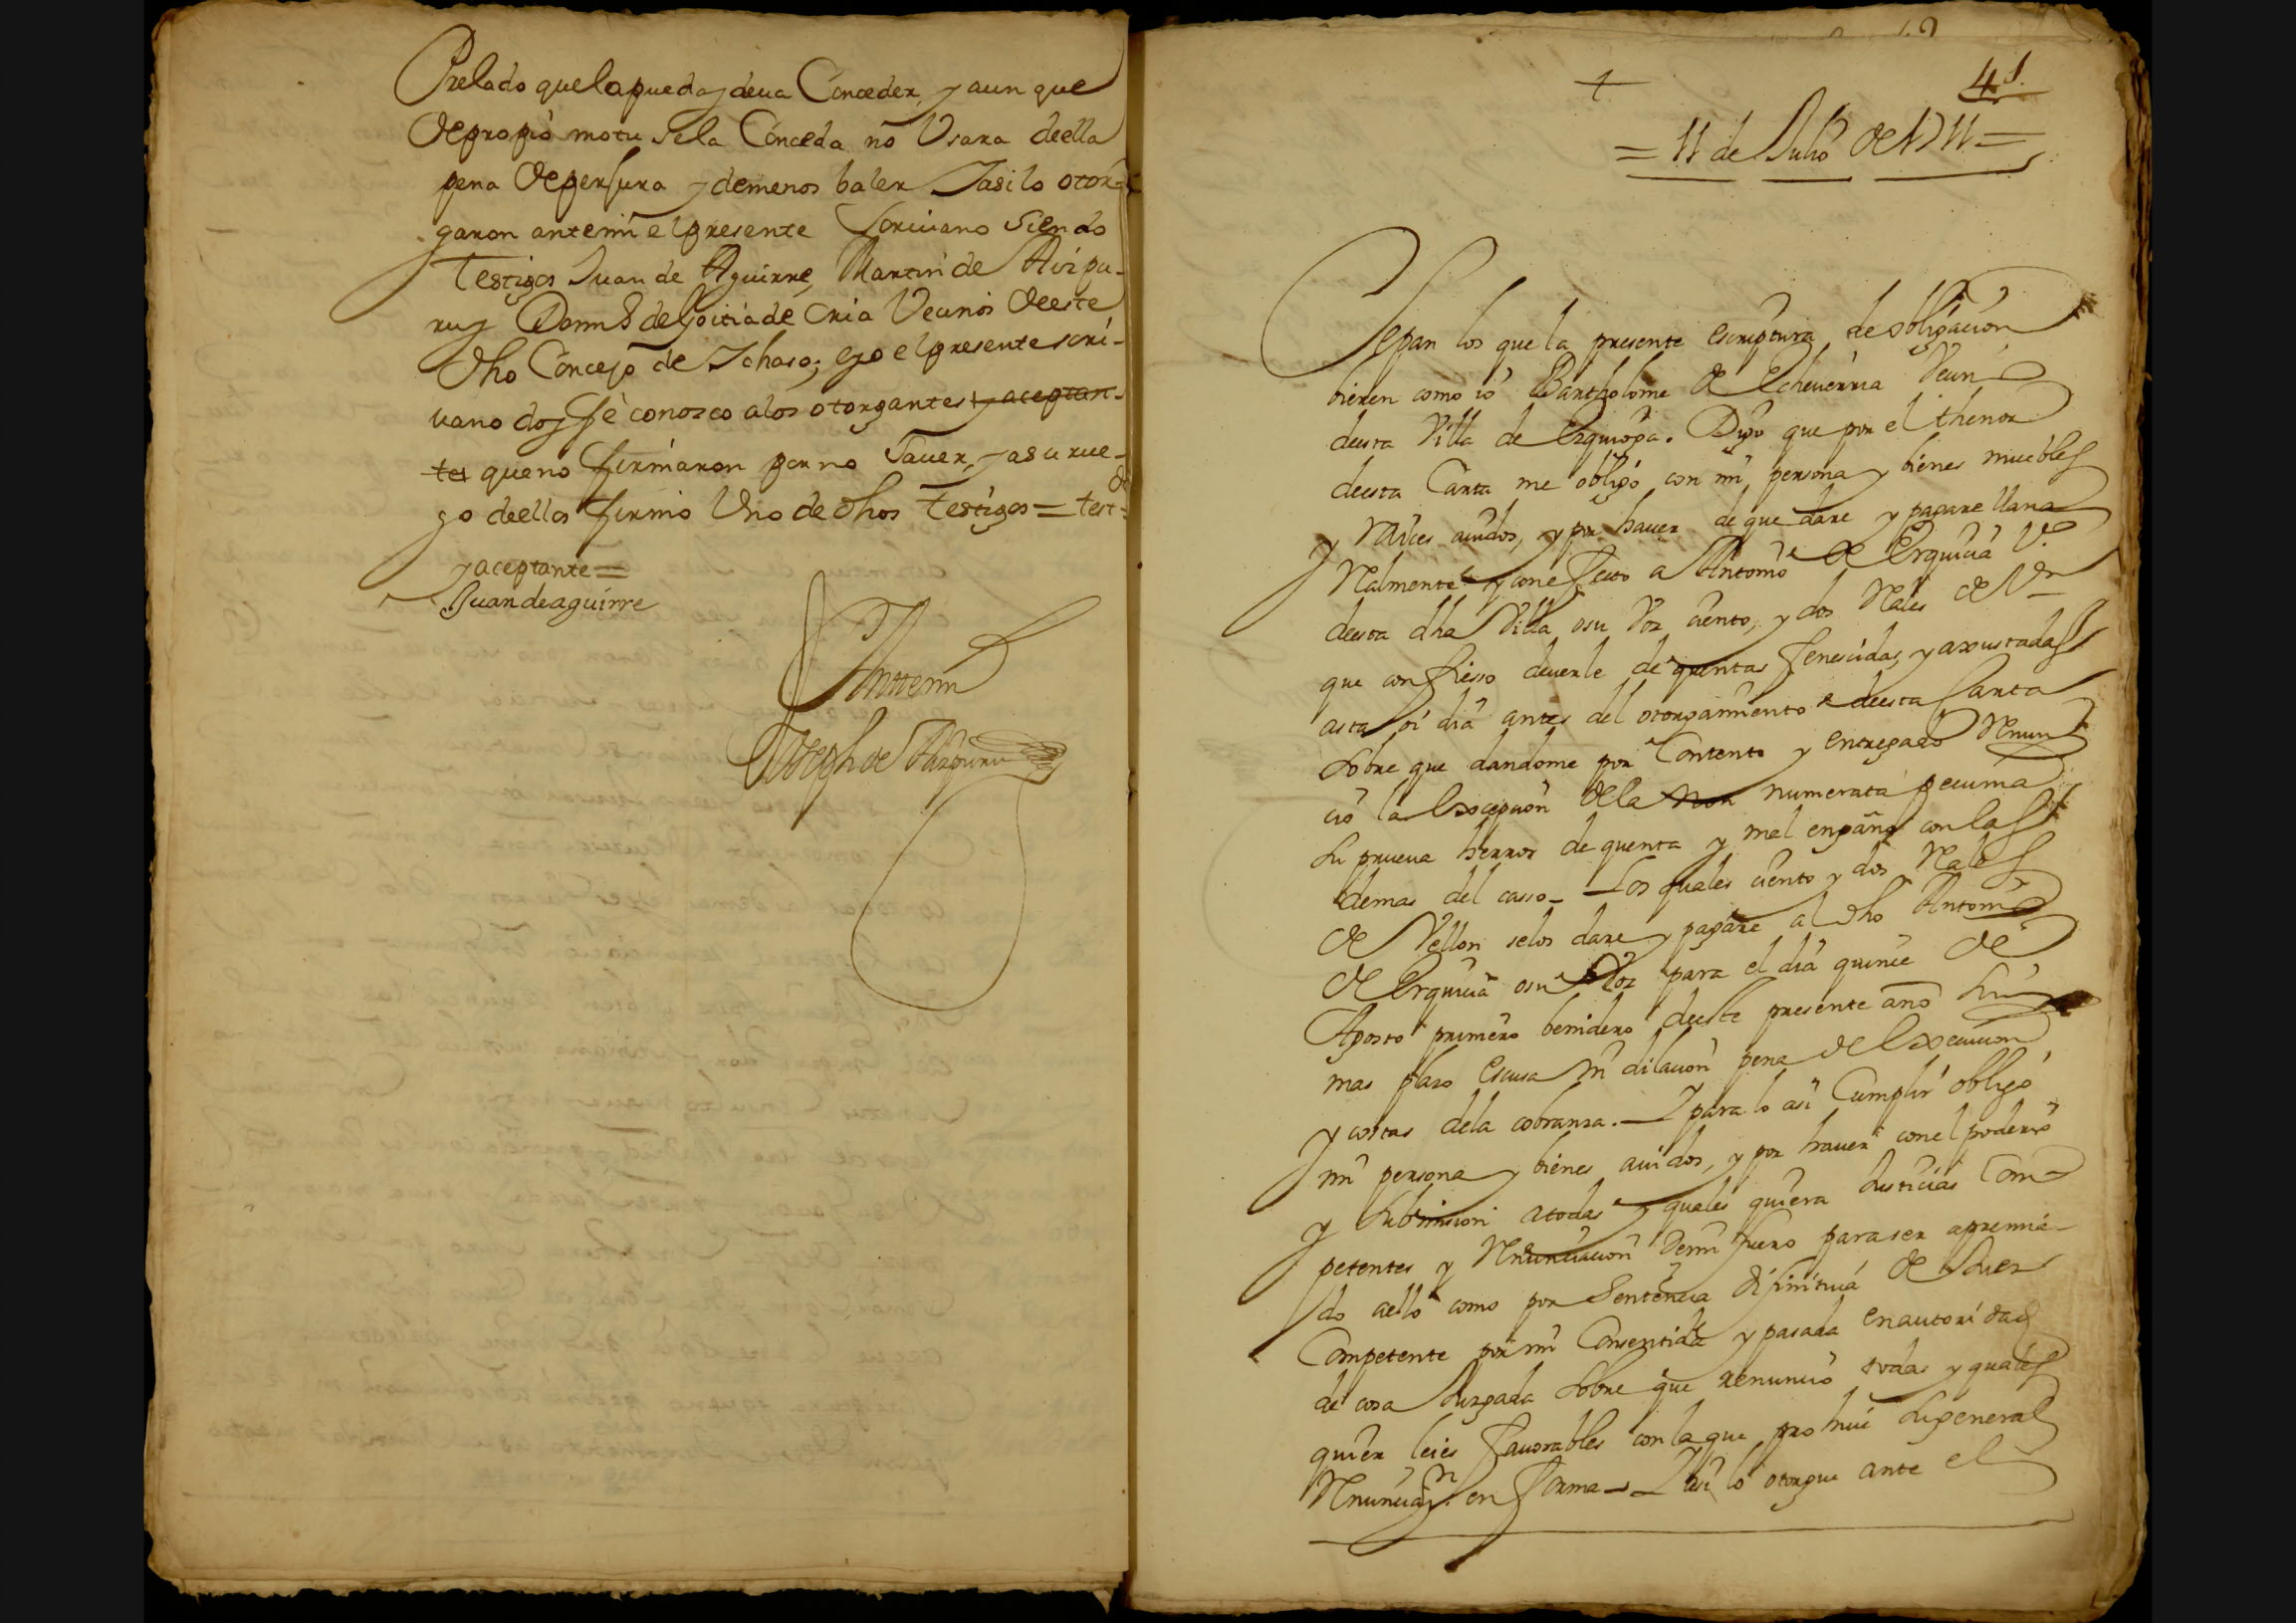 Prelado que la pueda y deua Conceder, y aun que
de propio motu se la Conceda no Usara de ella
pena de perjura y de menos baler Iasi lo otor-
garon ante mi el presente Scriuano siendo
testigos Juan de Aguirre, Martin de Aizpu-
ru y Domin8 de Goitia de Cria Vecinos de este
dho Concejo de Ichaso; e yo el presente scri-
uano doy fè conosco a los otorgantes y aceptan-
tes que no firmaron por no Sauer, y a su rue-
go de ellos firmo Uno de dhos testigos = test.do
y aceptante =
Juan de aguirre
Ante mi
Joseph de Aizpuru
+
41
= 11 de Julio de 1711 =
Sepan los que la presente escriptura de obligacion
bieren como io Bartholome de Echeuerria Vecino
deesta Villa de Ezquioga. Digo que por el thenor
deesta Carta me obligo con mi persona y bienes muebles
y Raices auidos, y por hauer de que dare y pagare llana
Realmente y con efecto a Antonio de Erquicia Vº
deesta dha Villa o su Voz ciento, y dos Rales de Vn
que confiesso deuerle de quentas fenescidas, y axustadas
asta oi dia antes del otorgamiento deesta Carta
sobre que dandome por Contento y entregado Renun
cio la Excepcion de la non numerata pecunia
su prueua herror de quenta y mal engaño con las
demas del casso - Los quales ciento y dos Rales
de Vellon selos dare y pagare al dho Antonio
de Erquicia o su Voz para el dia quince de
Agosto primero benidero deeste presente año sin
mas plaso escusa ni dilacion pena de Execucion
y costas dela cobranza. - I para lo asi Cumplir obligo
mi persona y bienes auidos, y por hauer con el poderio
y submision a todas y quales quiera Justicias Com-
petentes y Renunciacion de mi fuero para ser apremia-
do aello como por Sentencia difinitiua de Juez
Competente por mi Consentida y pasada en autoridad
de cosa Juzgada sobre que renuncio todas y quales
quier leies fauorables con la que prohiue la general
Renunciaçn en forma - I asi lo otorgue ante el